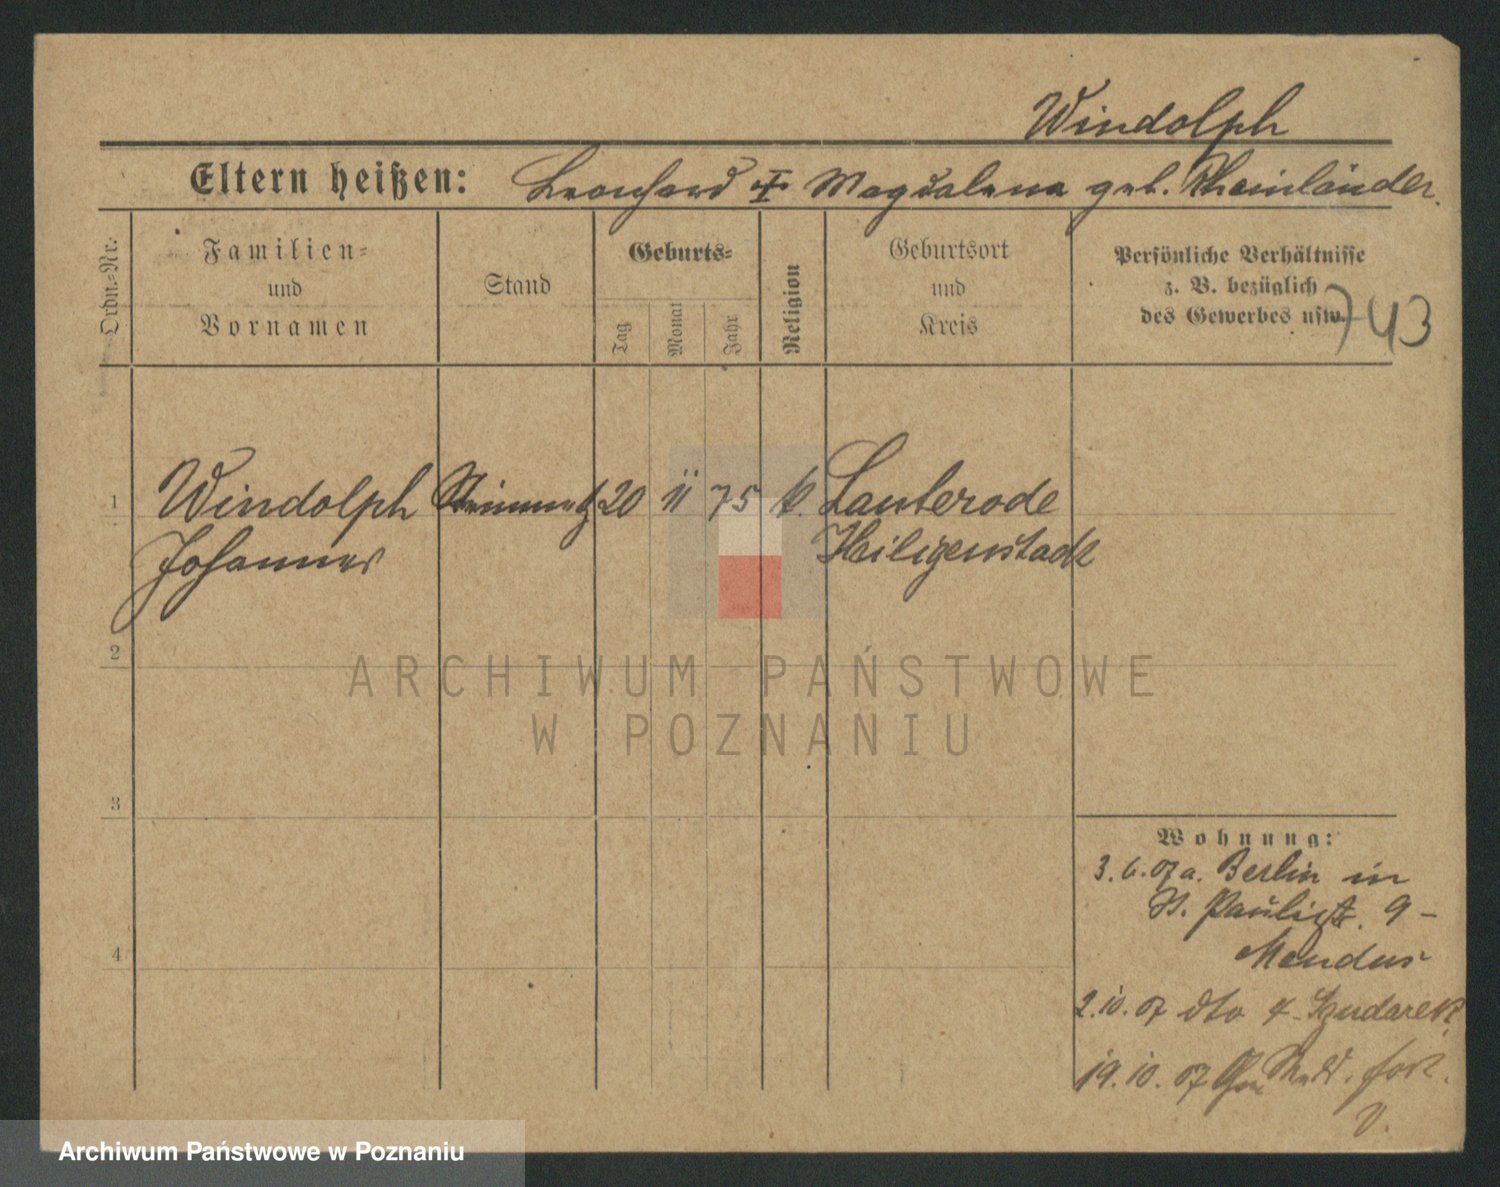 Windolph
Eltern heißen: Leonhard + Magdalena geb. Rheinländer.
Ordn.-Nr.
Familien-
und
Vornamen
Stand
Geburts-
Tag
Monat
Jahr
Religion
Geburtsort
und
Kreis
Persönliche Verhältnisse
z. B. bezüglich
des Gewerbes usw.
743
1 Windolph Steinmetz 20 11 75 k. Lauterode
Johannes Heiligenstadt
2
ARCHIWUM PAŃSTWOWE
W POZNANIU
3
Wohnung:
3. 6. 07 a. Berlin in
St. Paulist. 9 -
Mendus
4
2. 10. 07 dto 4 - Szudarek
19. 10. 07 fort.
V.
Archiwum Państwowe w Poznaniu